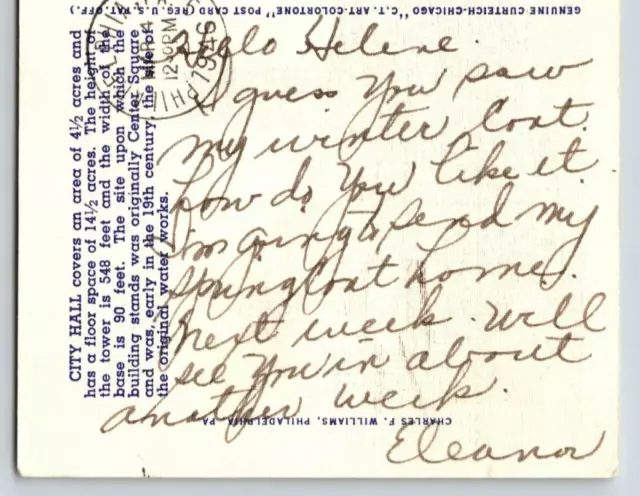 GENUINE CURTEICH-CHICAGO "C.T. ART-COLORTONE" POST CARD (REG. U.S. PAT. OFF.)
12 30 PM
1946
Hello Helene.
I guess you saw
my winter coat.
how do you like it.
I'm going to send my
spring coat home.
next week. will
see you in about
another week.
Eleanor
CITY HALL covers an area of 4½ acres and
has a floor space of 14½ acres. The height of
the tower is 548 feet and the width of the
base is 90 feet. The site upon which the
building stands was originally Center Square
and was, early in the 19th century, the site of
the original water works.
CHARLES F. WILLIAMS, PHILADELPHIA, PA.